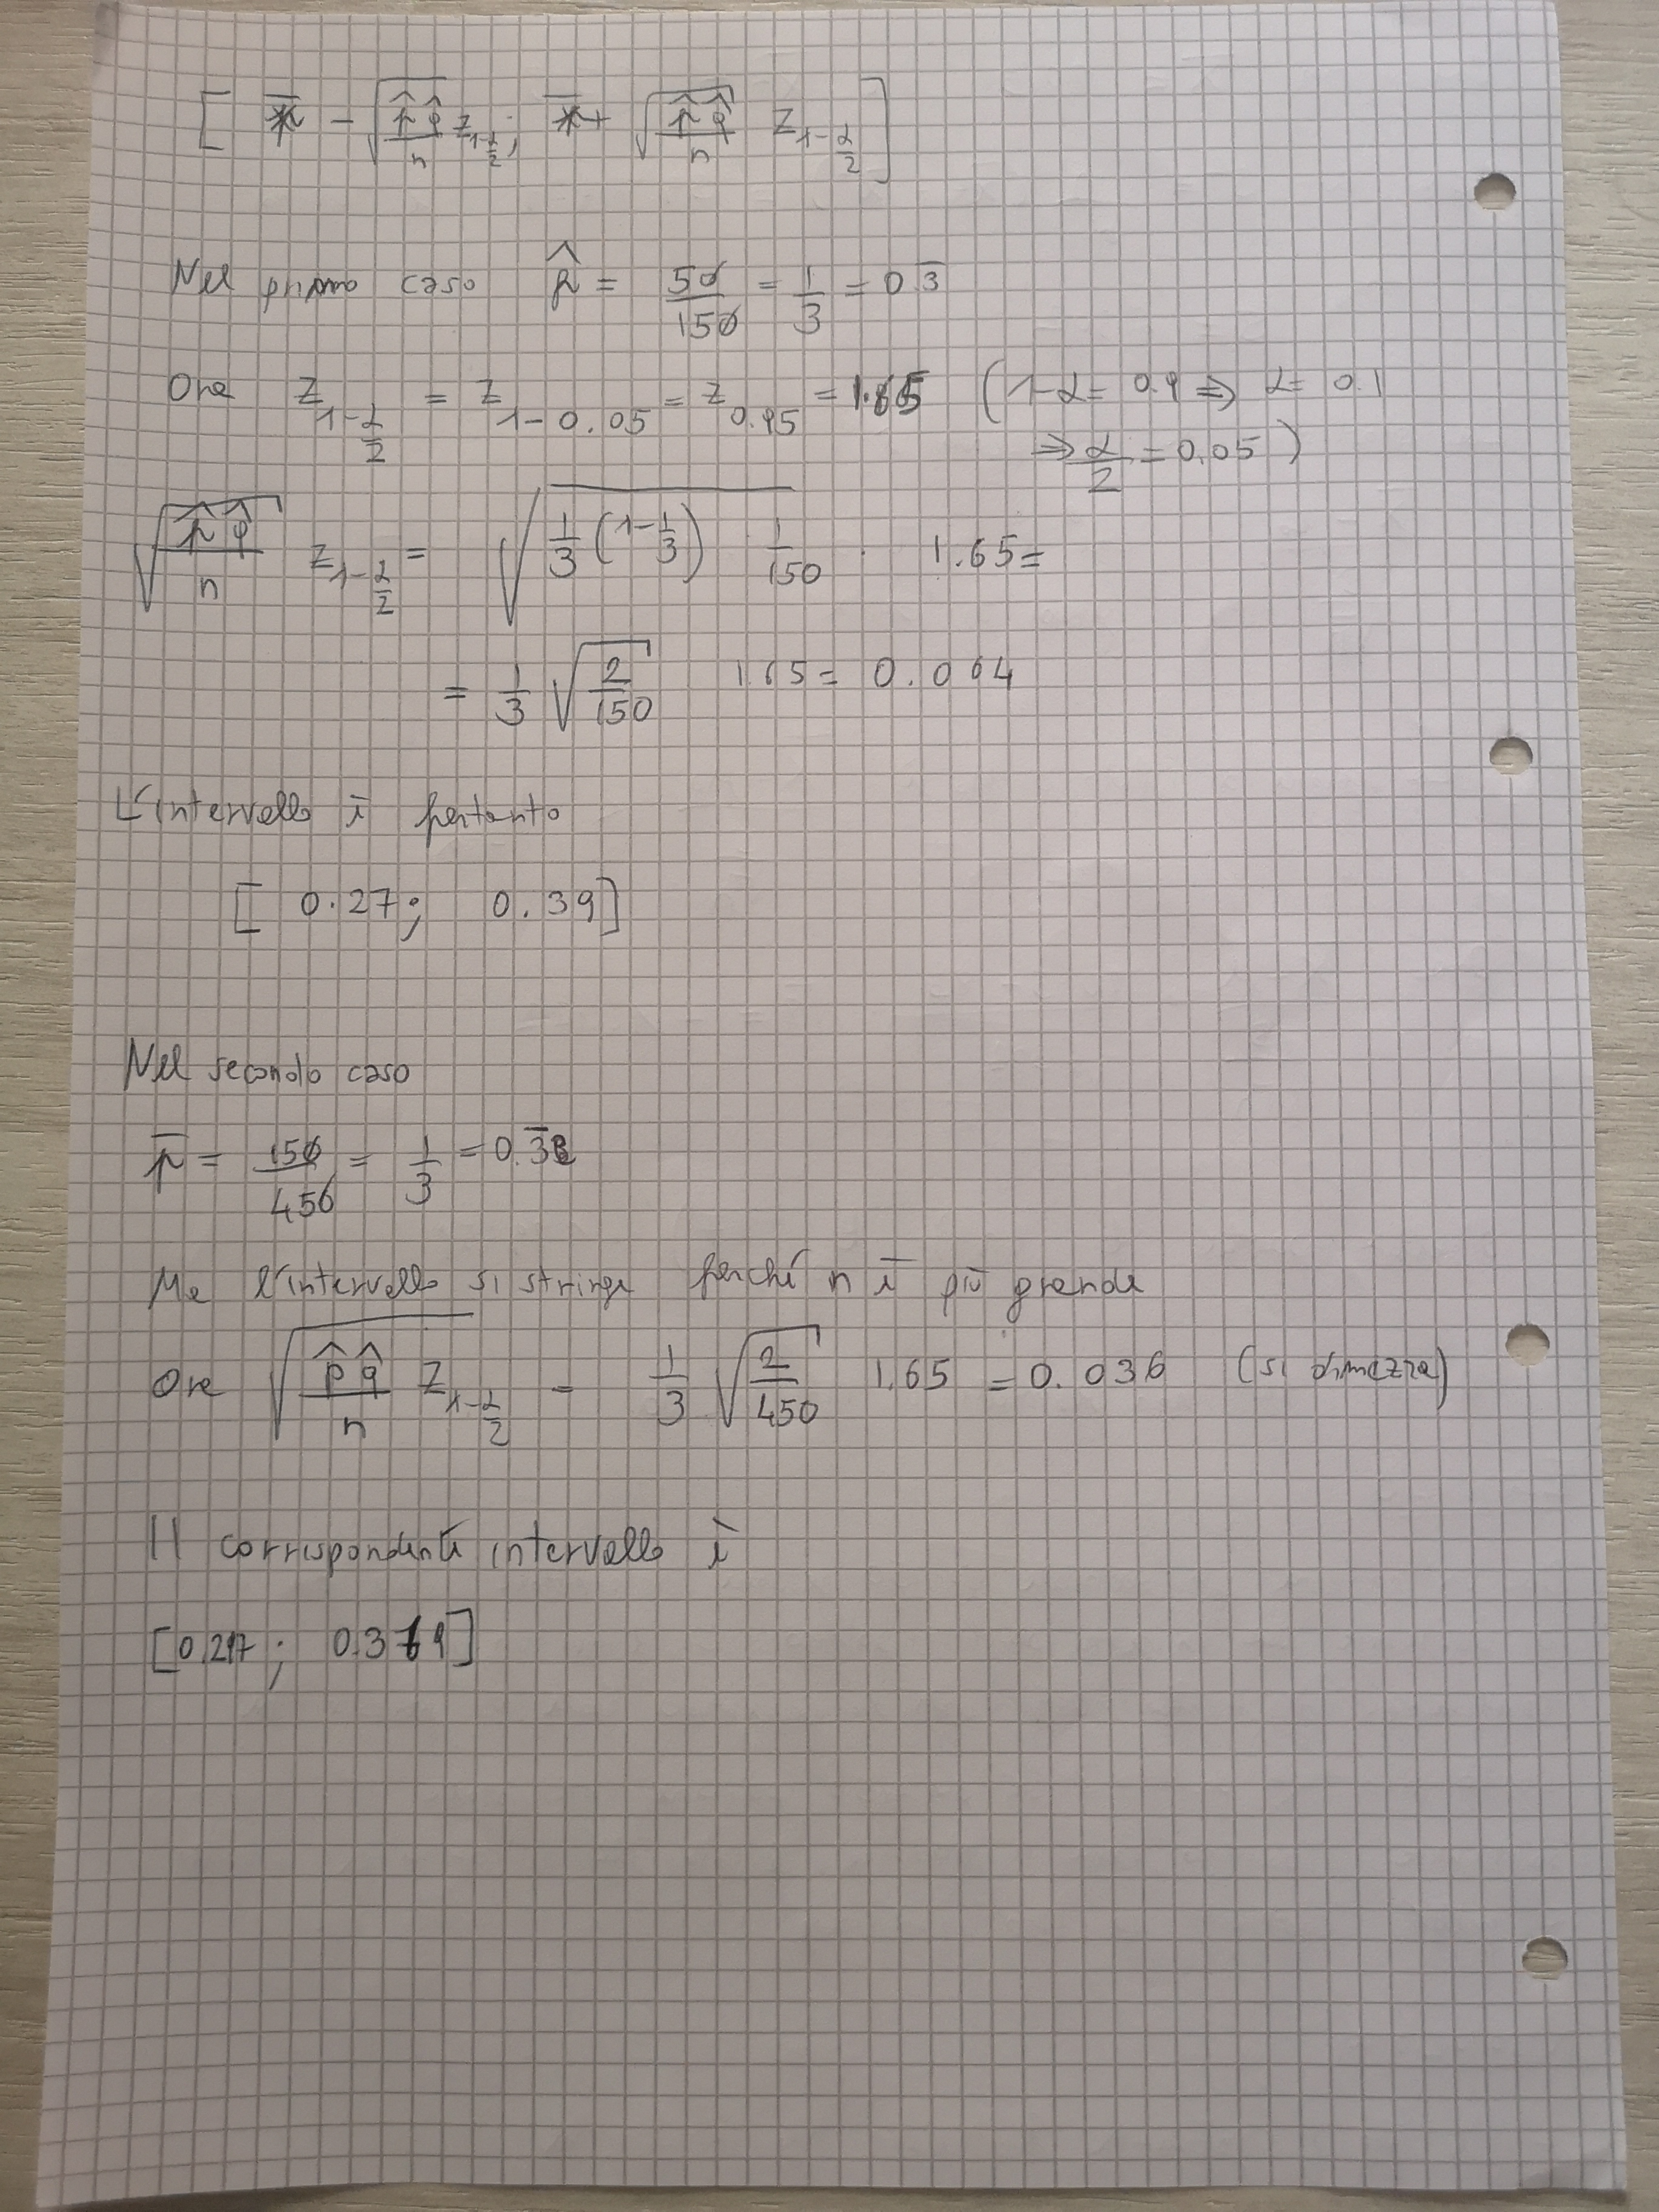 [ x̄ - √(p̂ q̂ / n) z_{1-α/2} ; x̄ + √(p̂ q̂ / n) z_{1-α/2} ]
Nel primo caso p̂ = 50/150 = 1/3 = 0 3̅
Ora z_{1-α/2} = z_{1-0.05} = z_{0.95} = 1.65 (1-α = 0.9 ⇒ α = 0.1
⇒ α/2 = 0.05)
√(p̂ q̂ / n) z_{1-α/2} = √(1/3 (1-1/3) 1/150) · 1.65 =
= 1/3 √(2/150) 1.65 = 0.064
L'intervallo è pertanto
[ 0.27; 0.39]
Nel secondo caso
p̅ = 150/450 = 1/3 = 0.3̅
Ma l'intervallo si stringe perché n è più grande
Ora √(p̂ q̂ / n) z_{1-α/2} = 1/3 √(2/450) 1.65 = 0.036 (si dimezza)
Il corrispondente intervallo è
[0.297; 0.369]